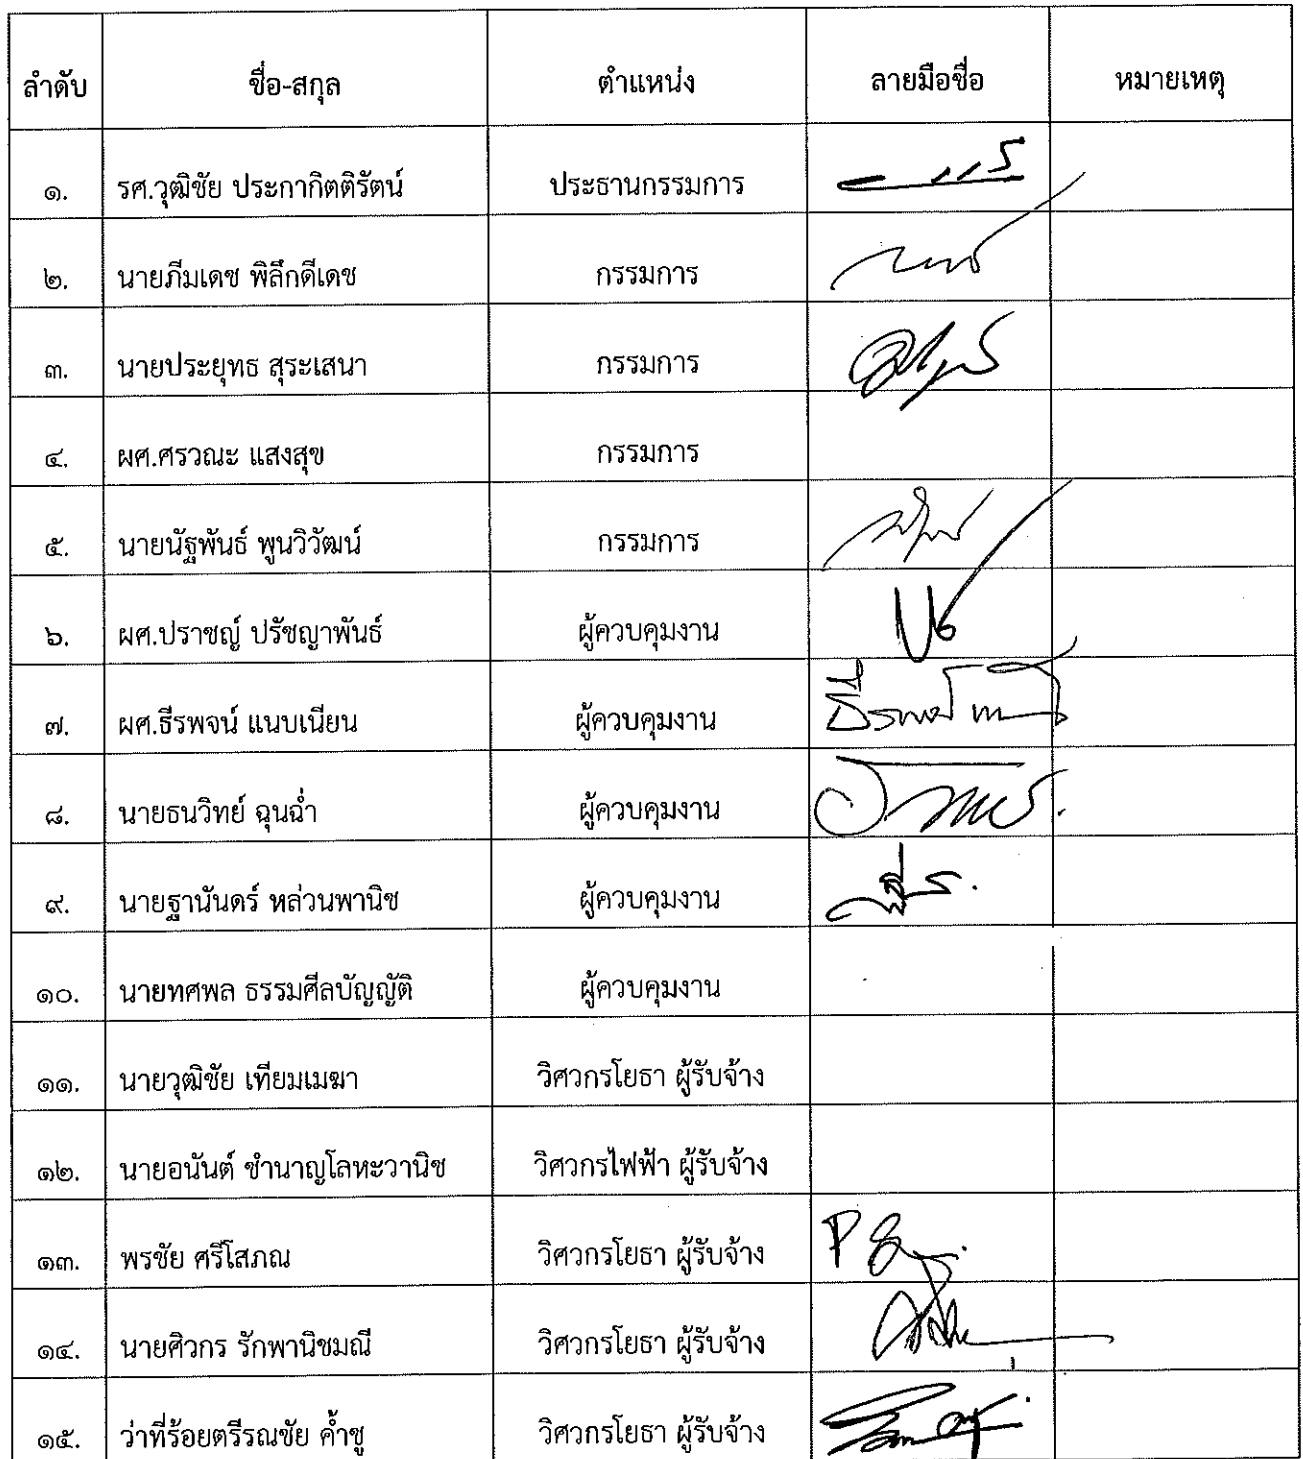 ลำดับ ชื่อ-สกุล ตำแหน่ง ลายมือชื่อ หมายเหตุ
๑. รศ.วุฒิชัย ประกากิตติรัตน์ ประธานกรรมการ
๒. นายภีมเดช พิลึกดีเดช กรรมการ
๓. นายประยุทธ สุระเสนา กรรมการ
๔. ผศ.ศรวณะ แสงสุข กรรมการ
๕. นายนัฐพันธ์ พูนวิวัฒน์ กรรมการ
๖. ผศ.ปราชญ์ ปรัชญาพันธ์ ผู้ควบคุมงาน
๗. ผศ.ธีรพจน์ แนบเนียน ผู้ควบคุมงาน
๘. นายธนวิทย์ ฉุนฉ่ำ ผู้ควบคุมงาน
๙. นายฐานันดร์ หล่วนพานิช ผู้ควบคุมงาน
๑๐. นายทศพล ธรรมศีลบัญญัติ ผู้ควบคุมงาน
๑๑. นายวุฒิชัย เทียมเมฆา วิศวกรโยธา ผู้รับจ้าง
๑๒. นายอนันต์ ชำนาญโลหะวานิช วิศวกรไฟฟ้า ผู้รับจ้าง
๑๓. พรชัย ศรีโสภณ วิศวกรโยธา ผู้รับจ้าง
๑๔. นายศิวกร รักพานิชมณี วิศวกรโยธา ผู้รับจ้าง
๑๕. ว่าที่ร้อยตรีรณชัย ค้ำชู วิศวกรโยธา ผู้รับจ้าง